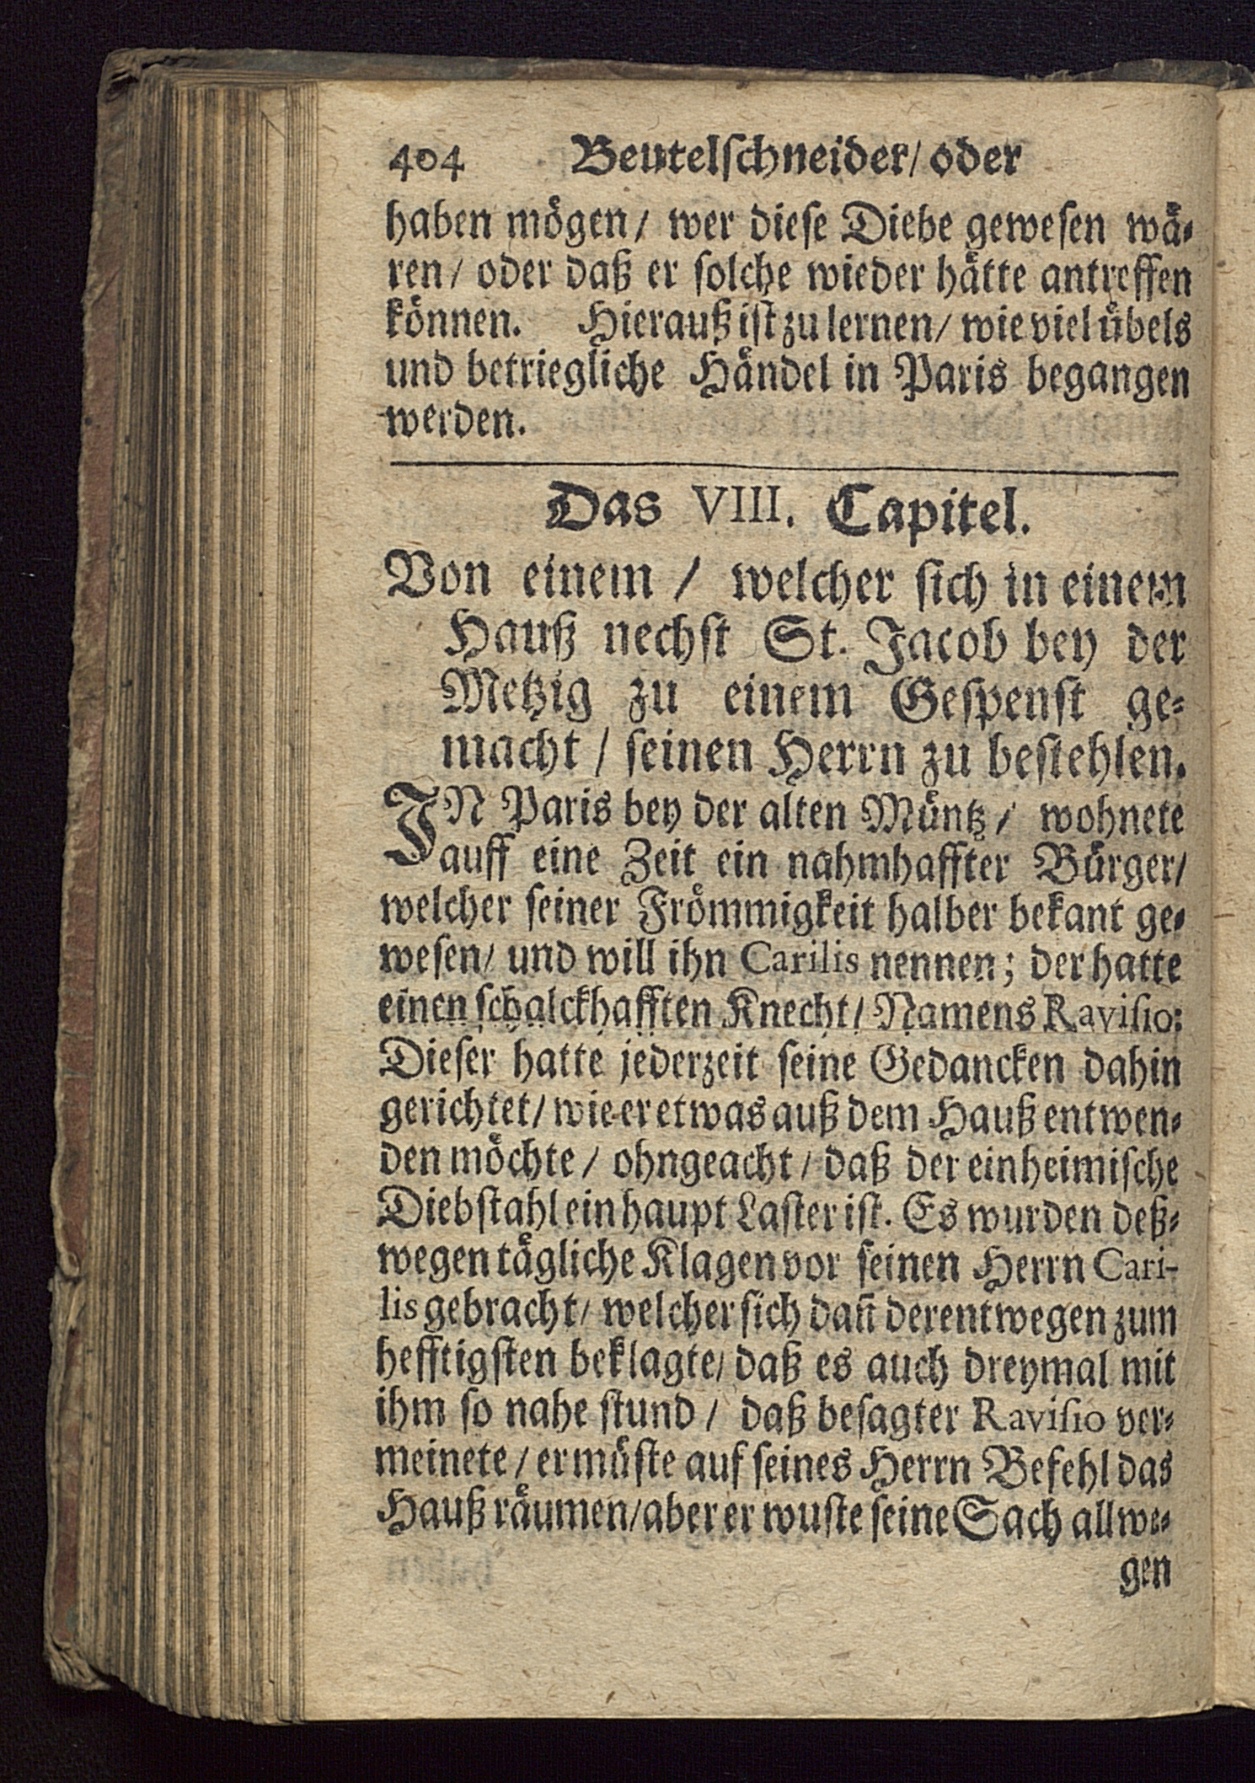 404 Beutelschneider/ oder
haben mögen/ wer diese Diebe gewesen wä-
ren/ oder daß er solche wieder hätte antreffen
können. Hierauß ist zu lernen/ wie viel übels
und betriegliche Händel in Paris begangen
werden.
Das VIII. Capitel.
Von einem / welcher sich in einem
Hauß nechst St. Jacob bey der
Metzig zu einem Gespenst ge-
macht / seinen Herrn zu bestehlen.
IN Paris bey der alten Müntz/ wohnete
auff eine Zeit ein nahmhaffter Bürger/
welcher seiner Frömmigkeit halber bekant ge-
wesen/ und will ihn Carilis nennen; der hatte
einen schalckhafften Knecht/ Namens Ravisio:
Dieser hatte jederzeit seine Gedancken dahin
gerichtet/ wie er etwas auß dem Hauß entwen-
den möchte/ ohngeacht/ daß der einheimische
Diebstahl ein haupt Laster ist. Es wurden deß-
wegen tägliche Klagen vor seinen Herrn Cari-
lis gebracht/ welcher sich dañ derentwegen zum
hefftigsten beklagte/ daß es auch dreymal mit
ihm so nahe stund/ daß besagter Ravisio ver-
meinete/ er müste auf seines Herrn Befehl das
Hauß räumen/ aber er wuste seine Sach allwe-
gen